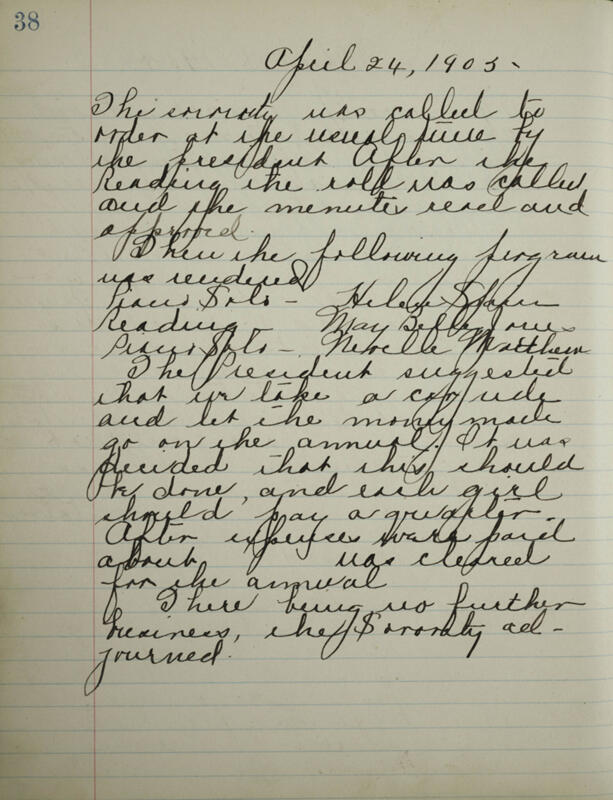 38
April 24, 1905-
The sorority was called to
order at the usual time by
the president After the
Reading the roll was called
and the menutes read and
approved.
Then the following program
was rendered
Piano Solo - Helen
Reading - May Belle Jones
Piano Solo - Newelle Matthews
The President suggested
that we take a car ride
and let the money made
go on the annual. It was
decided that this should
be done, and each girl
should pay a quarter.
After expenses were paid
about was cleared
for the annual
There being no further
business, the Sorority ad-
journed.